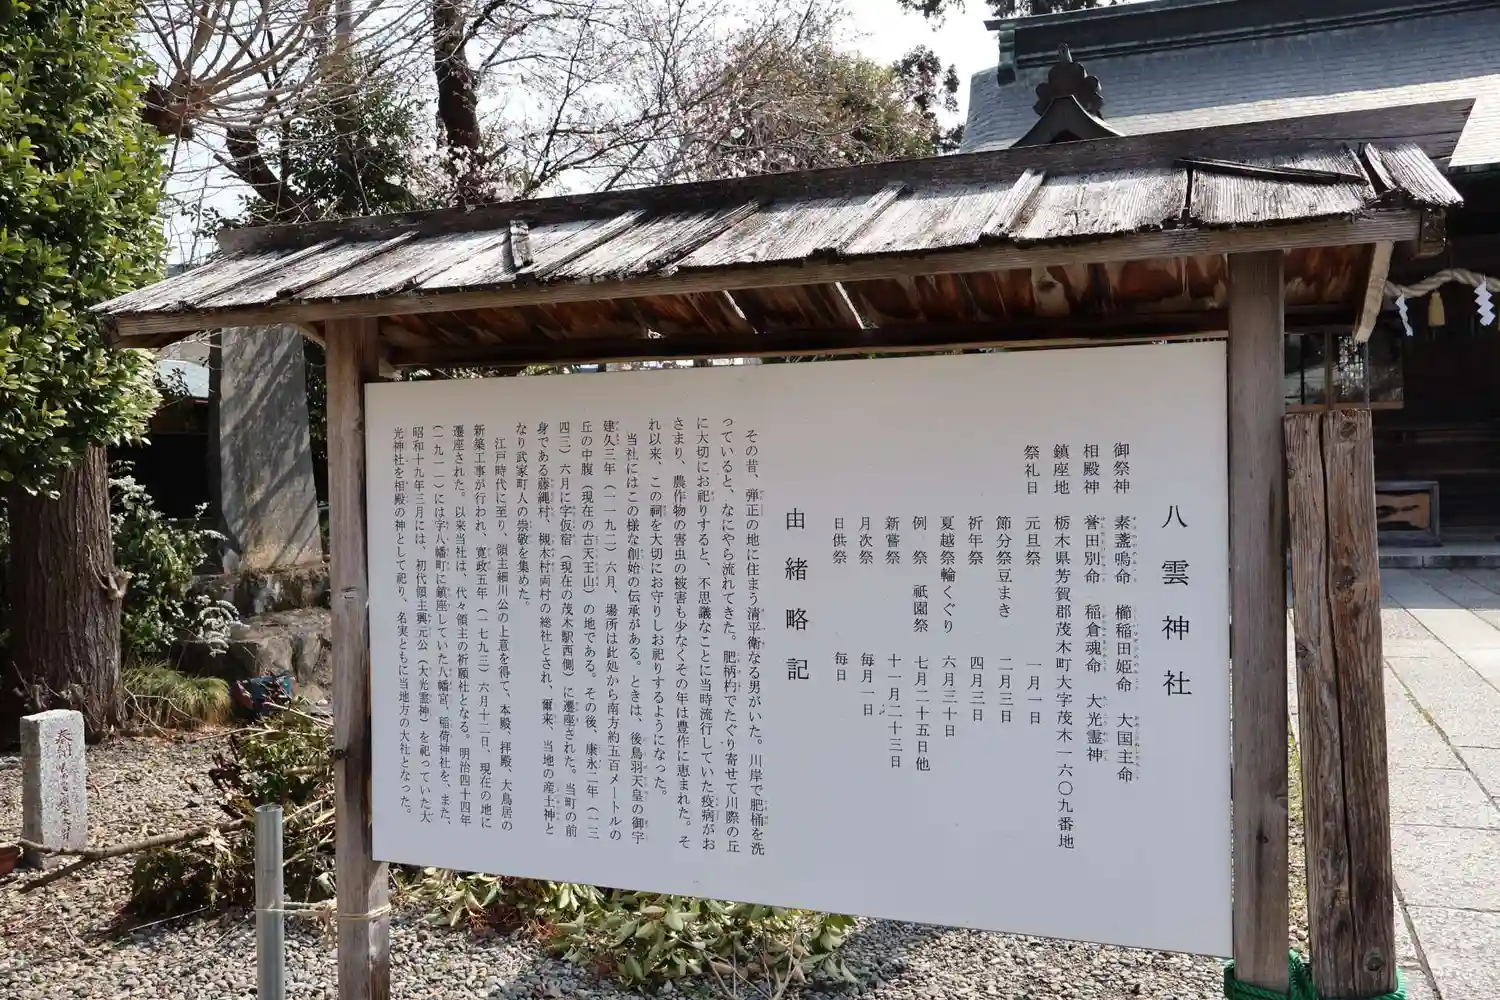 八雲神社
御祭神　素盞嗚命　櫛稲田姫命　大国主命
相殿神　誉田別命　稲倉魂命　大光霊神
鎮座地　栃木県芳賀郡茂木町大字茂木一六〇九番地
祭礼日　元旦祭　一月一日
節分祭豆まき　二月三日
祈年　祭　四月三日
夏越祭輪くぐり　六月三十日
例　祭　祇園祭　七月二十五日他
新嘗祭　十一月二十三日
月次祭　毎月一日
日供祭　毎日
由緒略記
その昔、弾正の地に住まう清平衛なる男がいた。川岸で肥桶を洗
っていると、なにやら流れてきた。肥柄杓でたぐり寄せて川際の丘
に大切にお祀りすると、不思議なことに当時流行していた疫病がお
さまり、農作物の害虫の被害も少なくその年は豊作に恵まれた。そ
れ以来、この祠を大切にお守りしお祀りするようになった。
当社にはこの様な創始の伝承がある。ときは、後鳥羽天皇の御宇
建久三年（一一九二）六月、場所は此処から南方約五百メートルの
丘の中腹（現在の古天王山）の地である。その後、康永二年（一三
四三）六月に字仮宿（現在の茂木駅西側）に遷座された。当町の前
身である藤縄村、槻木村両村の総社とされ、爾来、当地の産土神と
なり武家町人の崇敬を集めた。
江戸時代に至り、領主細川公の上意を得て、本殿、拝殿、大鳥居の
新築工事が行われ、寛政五年（一七九三）六月十二日、現在の地に
遷座された。以来当社は、代々領主の祈願社となる。明治四十四年
（一九一一）には字八幡町に鎮座していた八幡宮、稲荷神社を、また、
昭和十九年三月には、初代領主興元公（大光霊神）を祀っていた大
光神社を相殿の神として祀り、名実ともに当地方の大社となった。